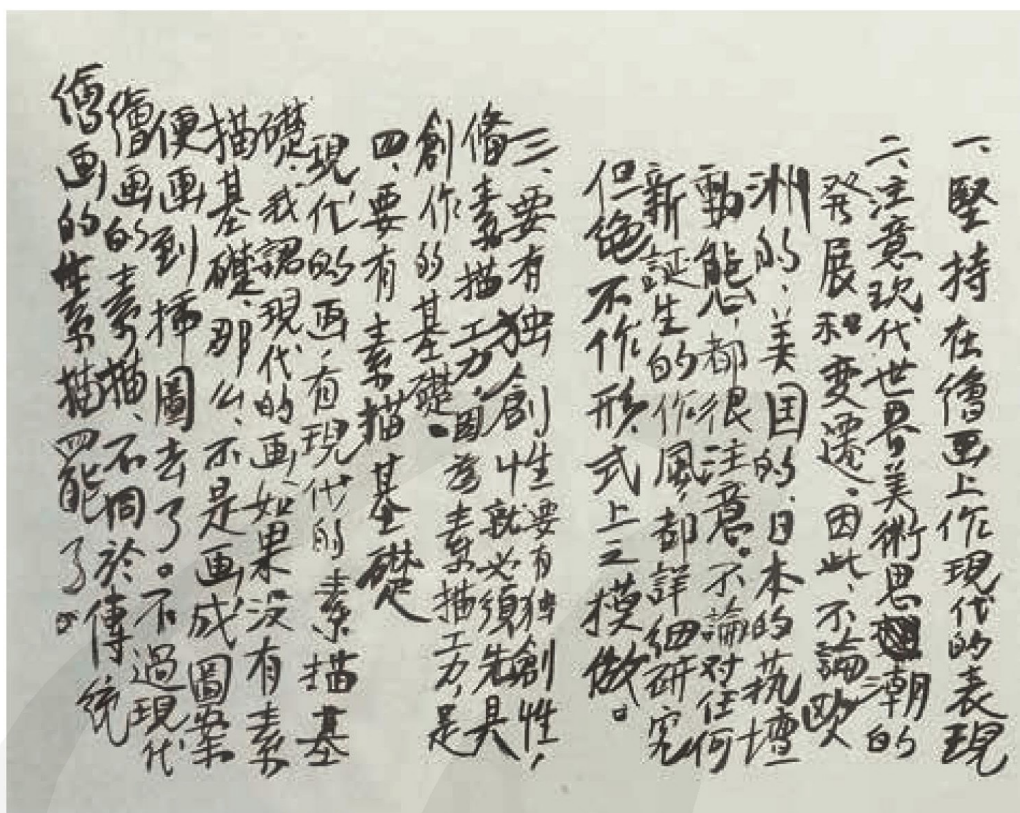 一、堅持在繪画上作現代的表現
二、注意現代世界美術思潮的
發展和变遷。因此、不論欧
洲的、美国的、日本的芸壇
動態，都很注意。不論对任何
新誕生的作風，都詳細研究
但絶不作形式上之摸倣。
三、要有独創性要有独創性，
就必須先具
俻素描工力，因為素描工力，是
創作的基礎。
四、要有素描基礎
現代的画，有現代的素描基
礎、我認現代的画，如果没有素
描基礎、那么、不是画成圖案
便画到挿圖去了。不過現代
繪画的素描、不同於傳統
繪画的素描罷了。